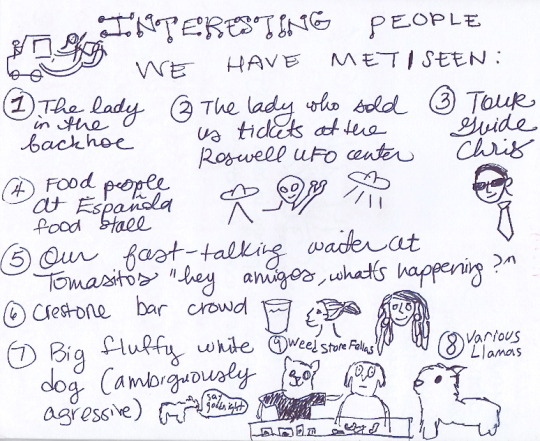 INTERESTING PEOPLE
WE HAVE MET/SEEN:
1 The lady
in the
backhoe
2 The lady who sold
us tickets at the
Roswell UFO center
3 Tour
Guide
Chris
4 Food people
at Española
food stall
5 Our fast-talking waiter at
Tomasitos "hey amigos, what's happening?"
6 Crestone bar crowd
7 Big fluffy white
dog (ambiguously
agressive)
say
goodnight
9 Weed Store Fellas
8 Various
Llamas